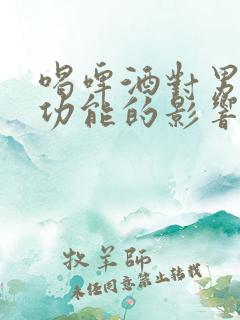 喝啤酒對男
功能的影響
牧羊師
未經同意禁止轉載